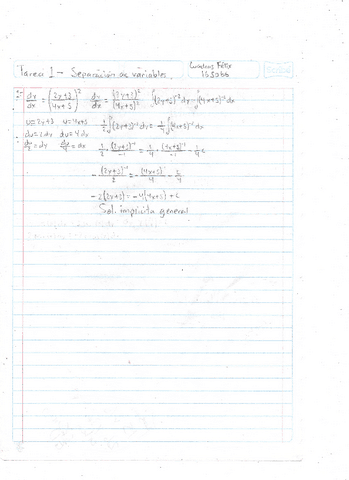 Tarea 1 - Separación de variables.
dy/dx = (2y+3 / 4x+5)² dy/dx = (2y+3)² / (4x+5)² ∫(2y+3)⁻² dy = ∫(4x+5)⁻² dx
u = 2y+3 u = 4x+5 1/2 ∫(2y+3)⁻² dy = 1/4 ∫(4x+5)⁻² dx
du = 2dy du = 4dx
du/2 = dy du/4 = dx 1/2 · (2y+3)⁻¹/-1 = 1/4 · (4x+5)⁻¹/-1 - 1/4 c
- (2y+3)⁻¹/2 = - (4x+5)⁻¹/4 - c/4
-2(2y+3) = -4(4x+5) + c
Sol. implícita general